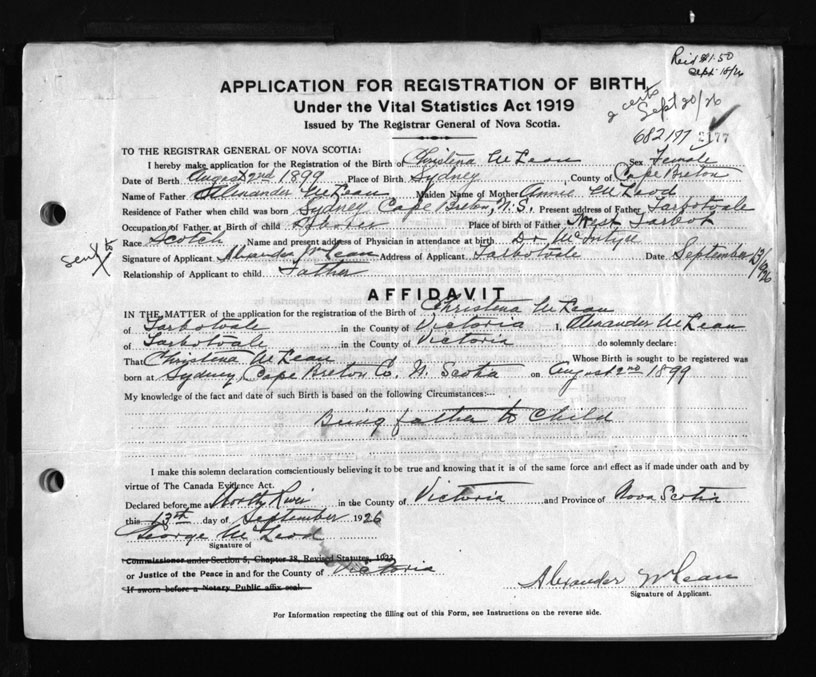 Reid $1.50
Sept 18/26
APPLICATION FOR REGISTRATION OF BIRTH
Under the Vital Statistics Act 1919
2 certs Sept 20/26
Issued by The Registrar General of Nova Scotia.
682197 3177
TO THE REGISTRAR GENERAL OF NOVA SCOTIA:
I hereby make application for the Registration of the Birth of Christena McLean Sex Female
Date of Birth August 2nd 1899 Place of Birth Sydney County of Cape Breton
Name of Father Alexander McLean Maiden Name of Mother Annie McLeod
Residence of Father when child was born Sydney Cape Breton, N.S. Present address of Father Tarbotvale
Occupation of Father at Birth of child Place of birth of Father West Tarbot
Race Scotch Name and present address of Physician in attendance at birth Dr McIntyre
Signature of Applicant Alexander McLean Address of Applicant Tarbotvale Date September 13/926
Relationship of Applicant to child Father
AFFIDAVIT
IN THE MATTER of the application for the registration of the Birth of Christena McLean
of Tarbotvale in the County of Victoria I, Alexander McLean
of Tarbotvale in the County of Victoria do solemnly declare:
That Christena McLean Whose Birth is sought to be registered was
born at Sydney, Cape Breton Co. N. Scotia on August 2nd 1899
My knowledge of the fact and date of such Birth is based on the following Circumstances:—
Being father to Child
I make this solemn declaration conscientiously believing it to be true and knowing that it is of the same force and effect as if made under oath and by
virtue of The Canada Evidence Act.
Declared before me at North River in the County of Victoria and Province of Nova Scotia
this 13th day of September 1926
George McLeod
Signature of
Commissioner under Section 5, Chapter 38, Revised Statutes, 1923
or Justice of the Peace in and for the County of Victoria
If sworn before a Notary Public affix seal.
Alexander McLean
Signature of Applicant.
For Information respecting the filling out of this Form, see Instructions on the reverse side.